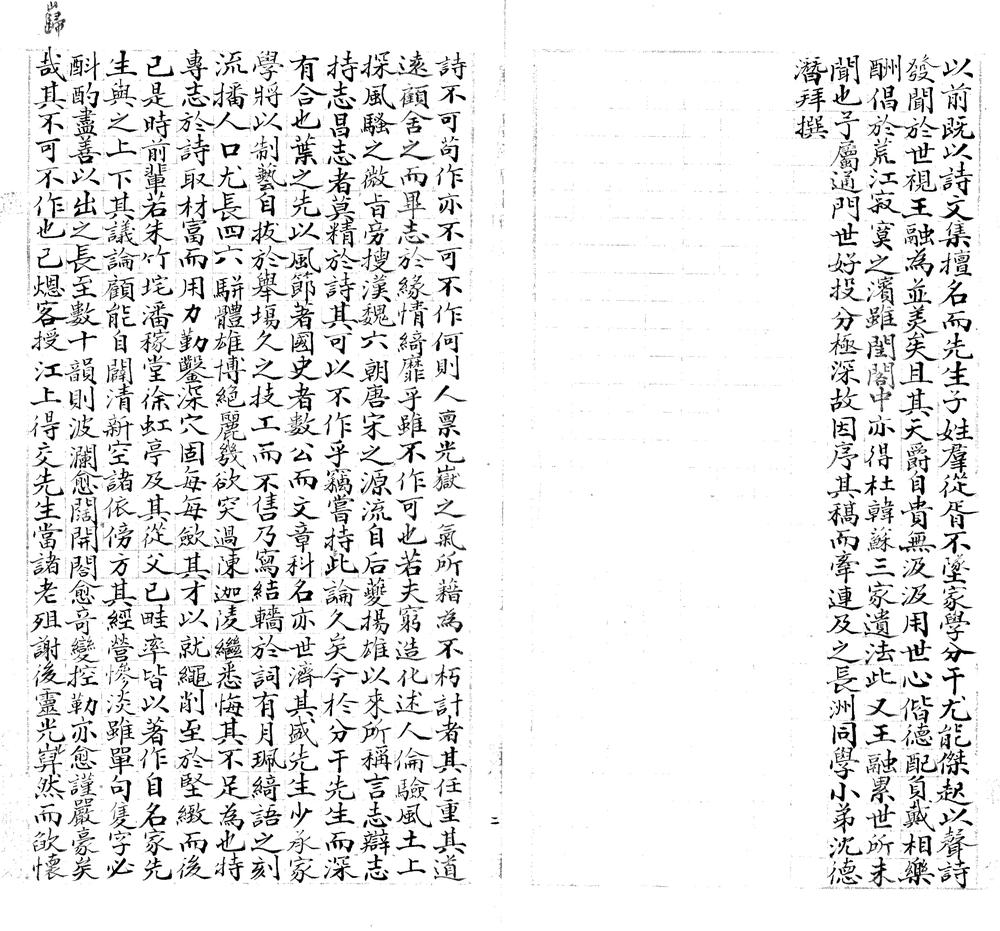 以前既以詩文集擅名而先生子姓羣從胥不墜家學分干尤能傑起以聲詩
發聞於世視王融為並美矣且其天爵自貴無汲汲用世心偕德配負戴相樂
酬倡於荒江寂寞之濱雖閨閤中亦得杜韓蘇三家遺法此又王融累世所未
聞也予屬通門世好投分極深故因序其稿而牽連及之長洲同學小弟沈德
潛拜撰
詩不可苟作亦不可不作何則人稟光嶽之氣所藉為不朽計者其任重其道
遠顧舍之而畢志於緣情綺靡乎雖不作可也若夫窮造化述人倫驗風土上
探風騷之微旨旁搜漢魏六朝唐宋之源流自后夔揚雄以來所稱言志辯志
持志昌志者莫精於詩其可以不作乎竊嘗持此論久矣今於分干先生而深
有合也葉之先以風節著國史者數公而文章科名亦世濟其盛先生少承家
學將以制藝自拔於舉場久之技工而不售乃寫結轖於詞有月珮綺語之刻
流播人口尤長四六駢體雄博絕麗幾欲突過陳迦陵繼悉悔其不足為也特
專志於詩取材富而用力勤鑿深穴固每每斂其才以就繩削至於堅緻而後
已是時前輩若朱竹垞潘稼堂徐虹亭及其從父已畦率皆以著作自名家先
生與之上下其議論顧能自闢清新空諸依傍方其經營慘淡雖單句隻字必
斟酌盡善以出之長至數十韻則波瀾愈闊開閤愈奇變控勒亦愈謹嚴豪矣
哉其不可不作也已熜客授江上得交先生當諸老殂謝後靈光巋然而欿懷
巋
二